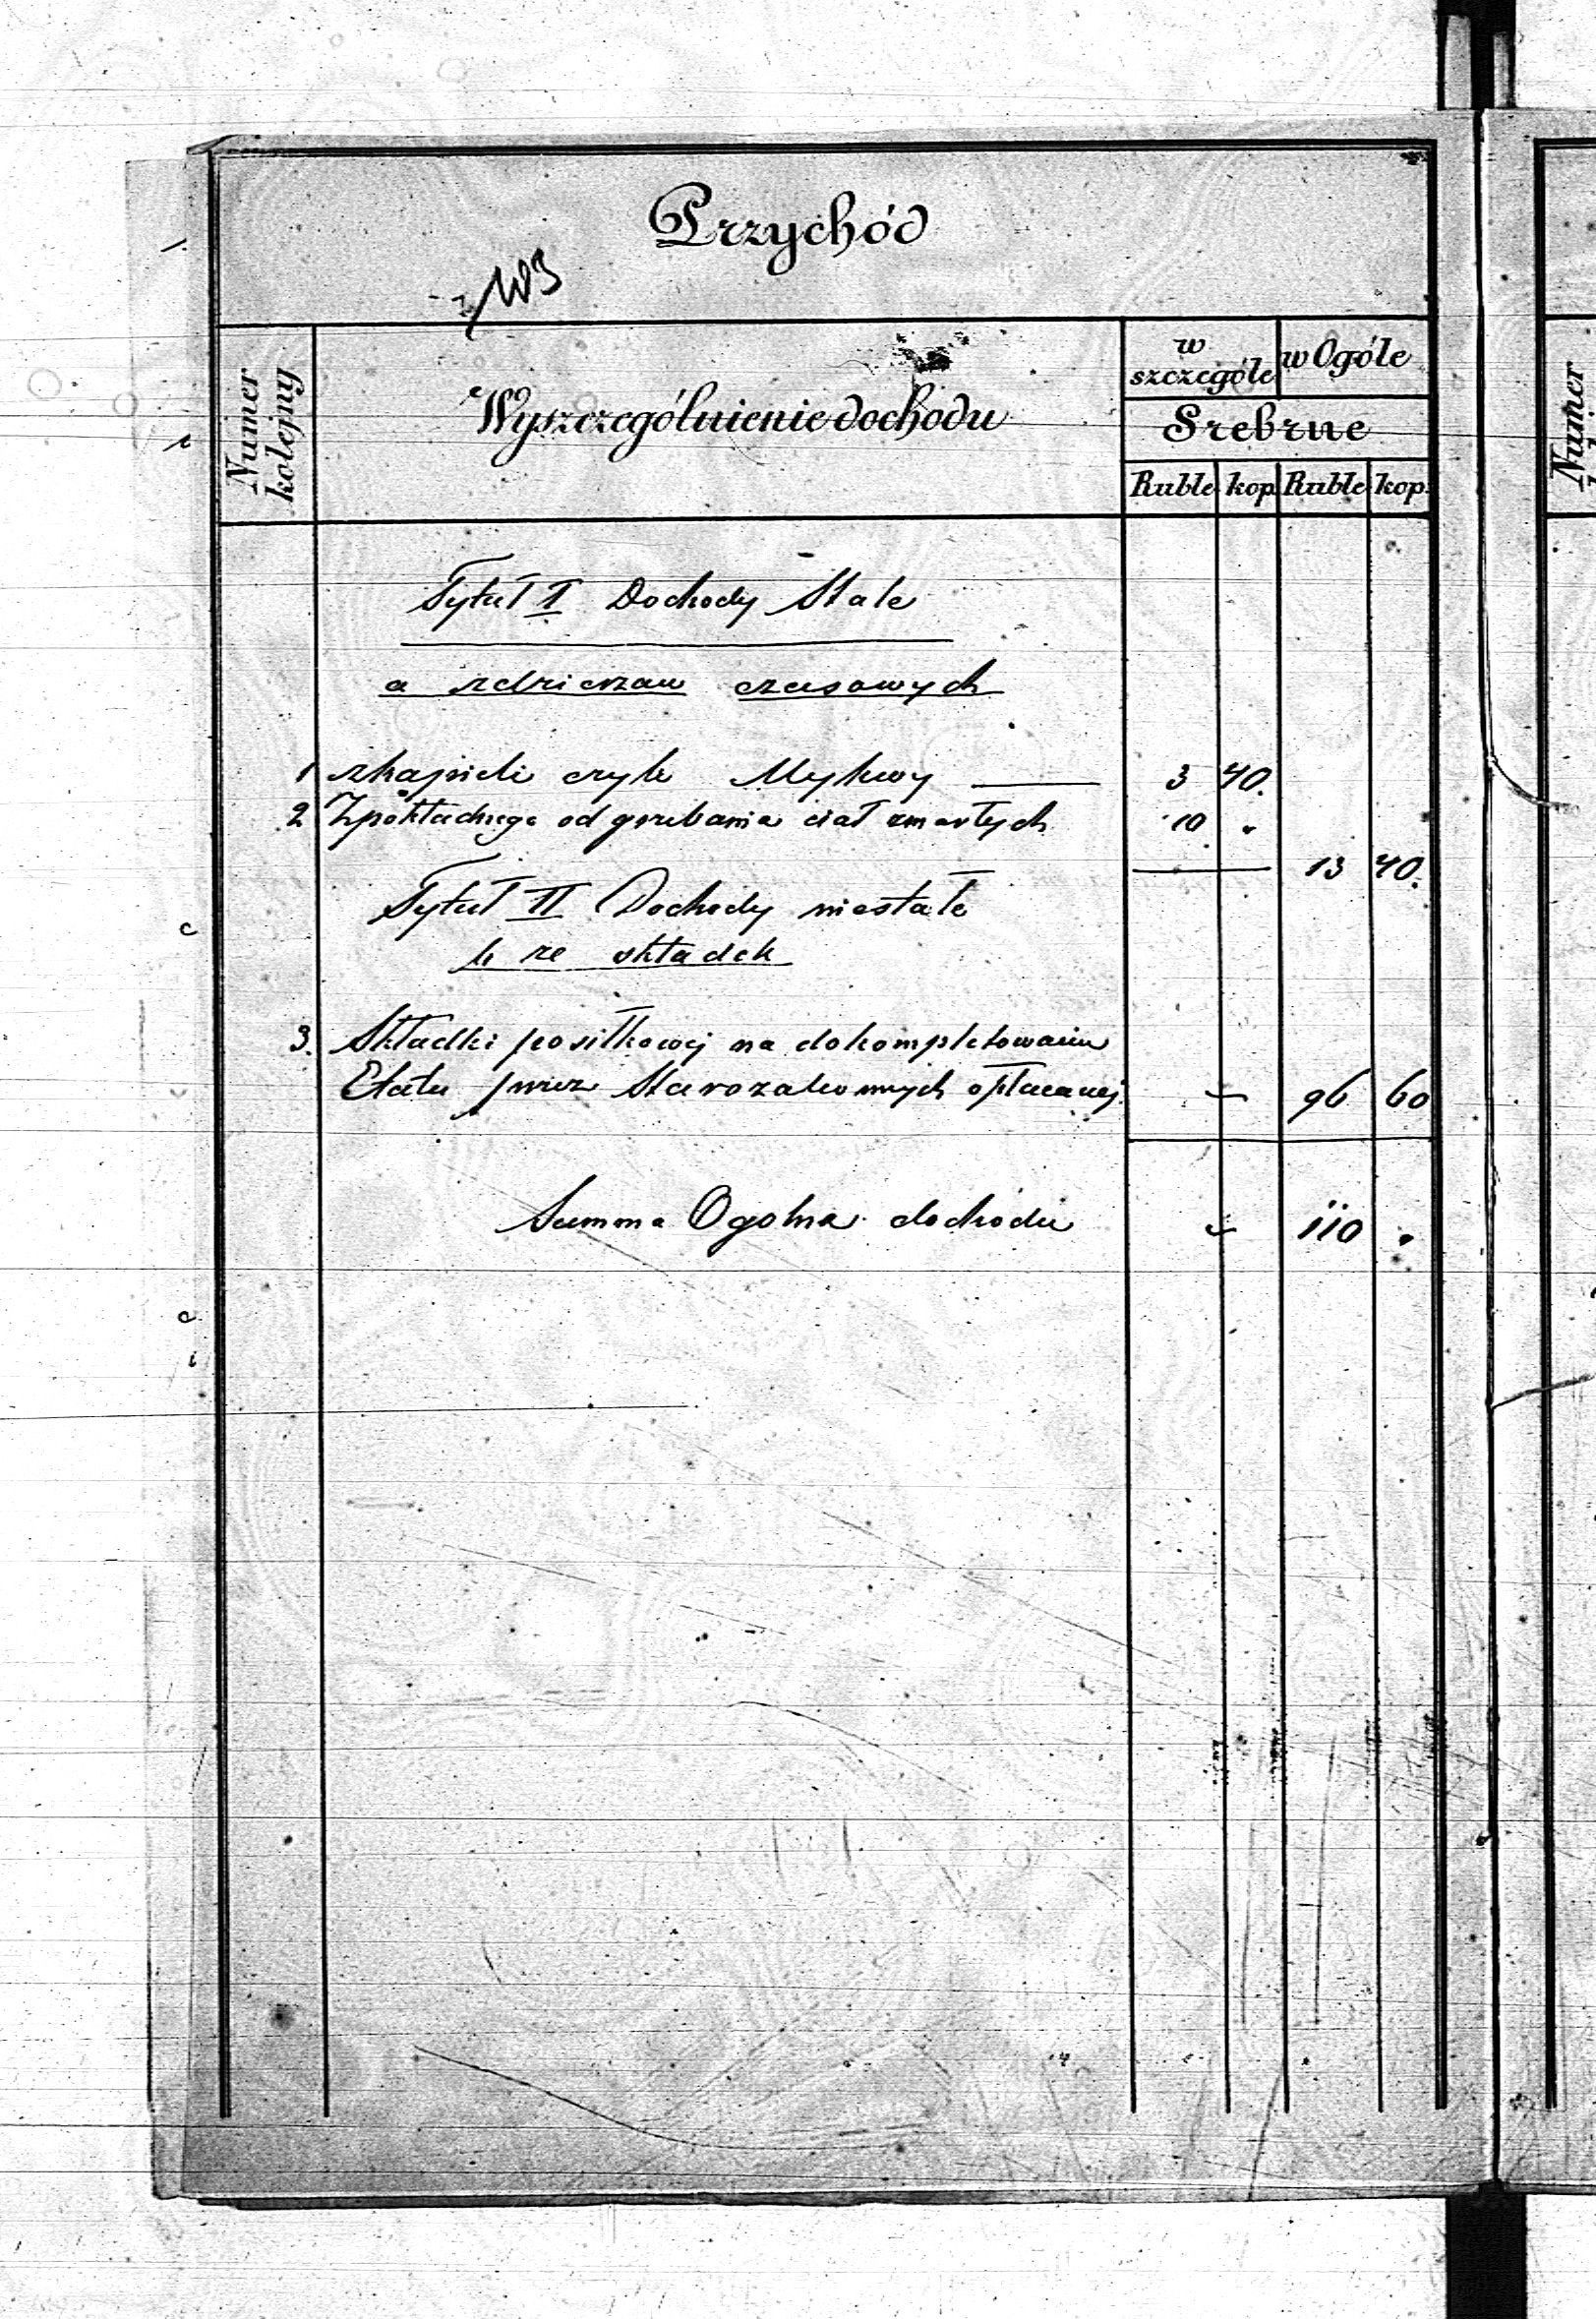 Przychód
Numer kolejny
Wyszczególnienie dochodu
w szczególe
w Ogóle
Srebrne
Ruble kop. Ruble kop.
Tytuł I Dochody Stałe
a zdzierzaw czasowych
1 zkąpieli czyli Mykwy 3 40.
2 Zpokładnego od grzebania ciał zmarłych 10 "
13 40.
Tytuł II Dochody niestałe
b ze składek
3. Składki posiłkowej na dokompletowanie
Etatu przez Starozakonnych opłacanej 96 60
Summa Ogolna dochodu 110 "
Numer